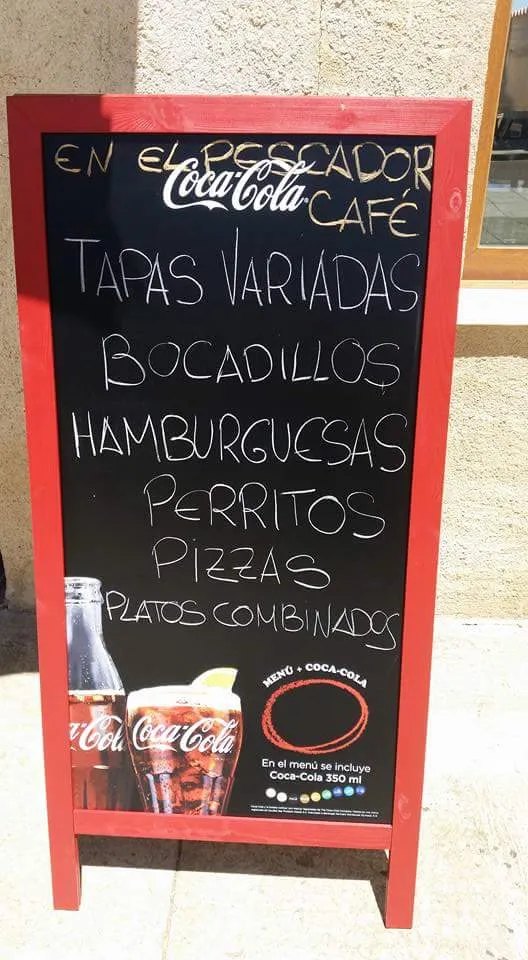 EN EL PESCADOR
Coca-Cola
CAFÉ
TAPAS VARIADAS
BOCADILLOS
HAMBURGUESAS
PERRITOS
PIZZAS
PLATOS COMBINADOS
MENÚ + COCA-COLA
Coca-Cola
Coca-Cola
En el menú se incluye
Coca-Cola 350 ml